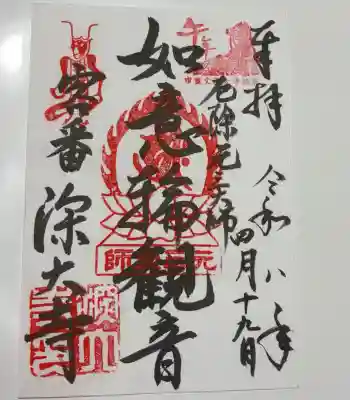 奉拝
令和八年
四月十九日
厄除元三大師
如意輪観音
深大寺
元三大師